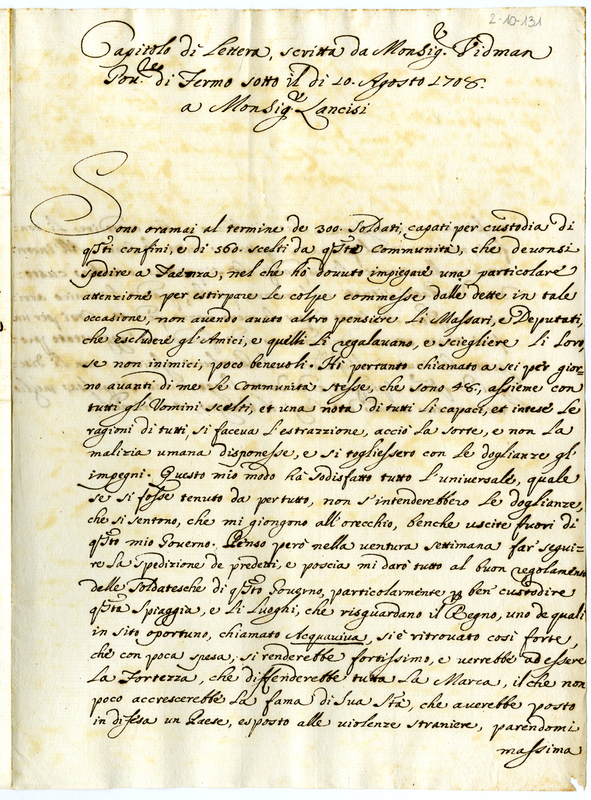 2-10-131
Capitolo di Lettera, scritta da Monsig.r Vidman
Gou.re di Fermo sotto il di 10. Agosto 1708.
a Monsig.r Lancisi
Sono oramai al termine de 300. Soldati, capati per custodia di
q.sti confini, e di 560. scelti da q.sta Communità, che devonsi
spedire a Faenza, nel che hò dovuto impiegare una particolare
attenzione per estirpare le colpe commesse dalle dette in tale
occasione, non avendo avuto altro pensiere li Massari, e Deputati,
che escludere gl'Amici, e quelli li regalavano, e sciegliere li loro,
se non inimici, poco benevoli. Hò pertanto chiamato a sei per gior=
no avanti di me le Communità stesse, che sono 48, assieme con
tutti gl'Uomini scelti, et una nota di tutti li capaci, et intese le
ragioni di tutti, si faceva l'estrazzione, acciò la sorte, e non la
malizia umana disponesse, e si togliessero con le doglianze gl'
impegni. Questo mio modo hà sodisfatto tutto l'universale, quale
se si fosse tenuto da per tutto, non s'intenderebbero le doglianze,
che si sentono, che mi giongono all'orecchio, benche uscite fuori di
q.sto mio Governo. Penso però nella ventura settimana far segui=
re la spedizione de predetti, e poscia mi darò tutto al buon regolamento
delle Soldatesche di q.sto Governo, particolarmente p ben custodire
q.sta Spiaggia, e li Luoghi, che risguardano il Regno, uno de quali
in sito oportuno, chiamato Acquaviva, si è ritrovato così forte,
che con poca spesa, si renderebbe fortissimo, e verrebbe ad essere
la Fortezza, che diffenderebbe tutta la Marca, il che non
poco accrescerebbe la fama di Sua S.tà, che averebbe posto
in difesa un Paese, esposto alle violenze straniere, parendomi
massima